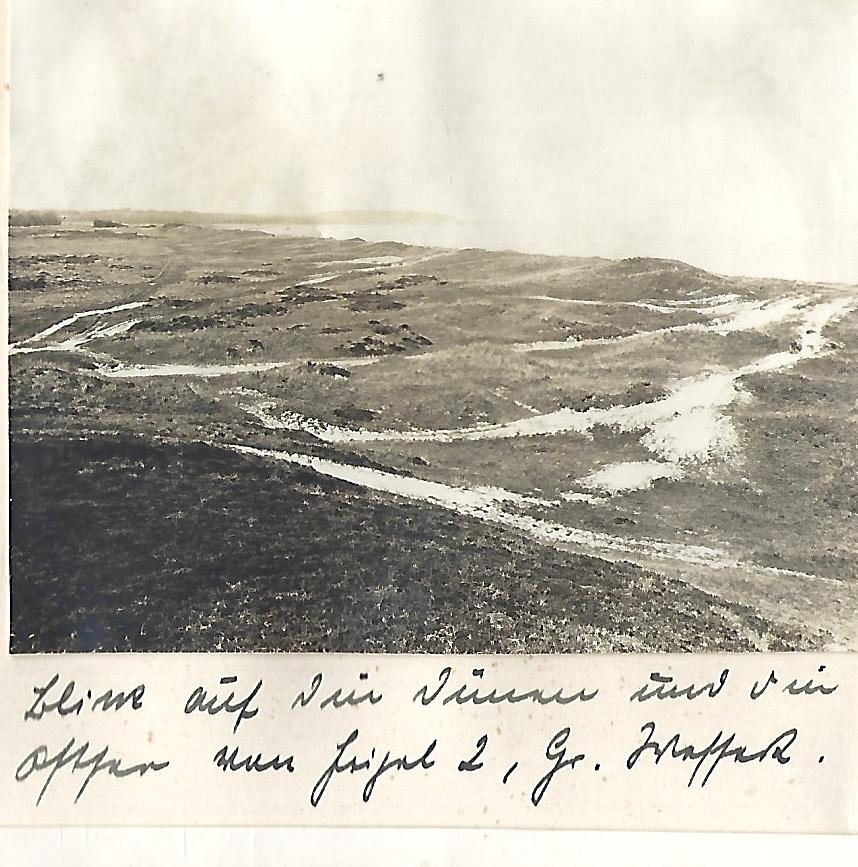 Blick auf die Dünen und die
Ostsee von Hügel 2, Gr. Wessek.